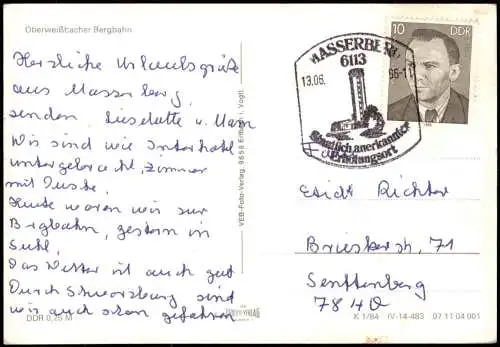 Oberweißbacher Bergbahn
Herzliche Urlaubsgrüße
aus Masserberg,
senden Liselotte u. Mann
Wir sind wie Interhotel
untergebracht, Zimmer
mit Dusche.
Heute waren wir zur
Bergbahn, gestern in
Suhl.
Das Wetter ist auch gut
Durch Schwarzburg sind
wir auch schon gefahren
DDR 0,25 M
VEB-Foto-Verlag, 9656 Erlbach i. Vogtl.
MASSERBERG
6113
13.06.
86-11
Staatlich anerkannter
Erholungsort
10 DDR
Richter
71
Senftenberg
7840
K 1/84 IV-14-483 07 11 04 001